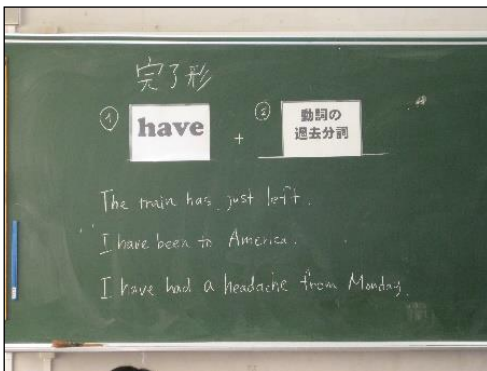 完了形
① have + ② 動詞の
過去分詞
The train has just left.
I have been to America.
I have had a headache from Monday.